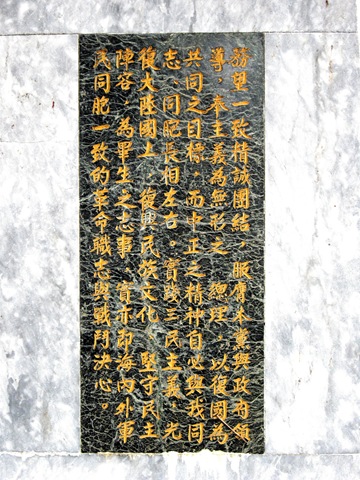 務望一致精誠團結，服膺本黨與政府領
導，奉主義為無形之總理，以復國為
共同之目標，而中正之精神自必與我同
志、同胞長相左右。實踐三民主義，光
復大陸國土，復興民族文化，堅守民主
陣容，為畢生之志事，實亦即海內外軍
民同胞一致的革命職志與戰鬥決心。